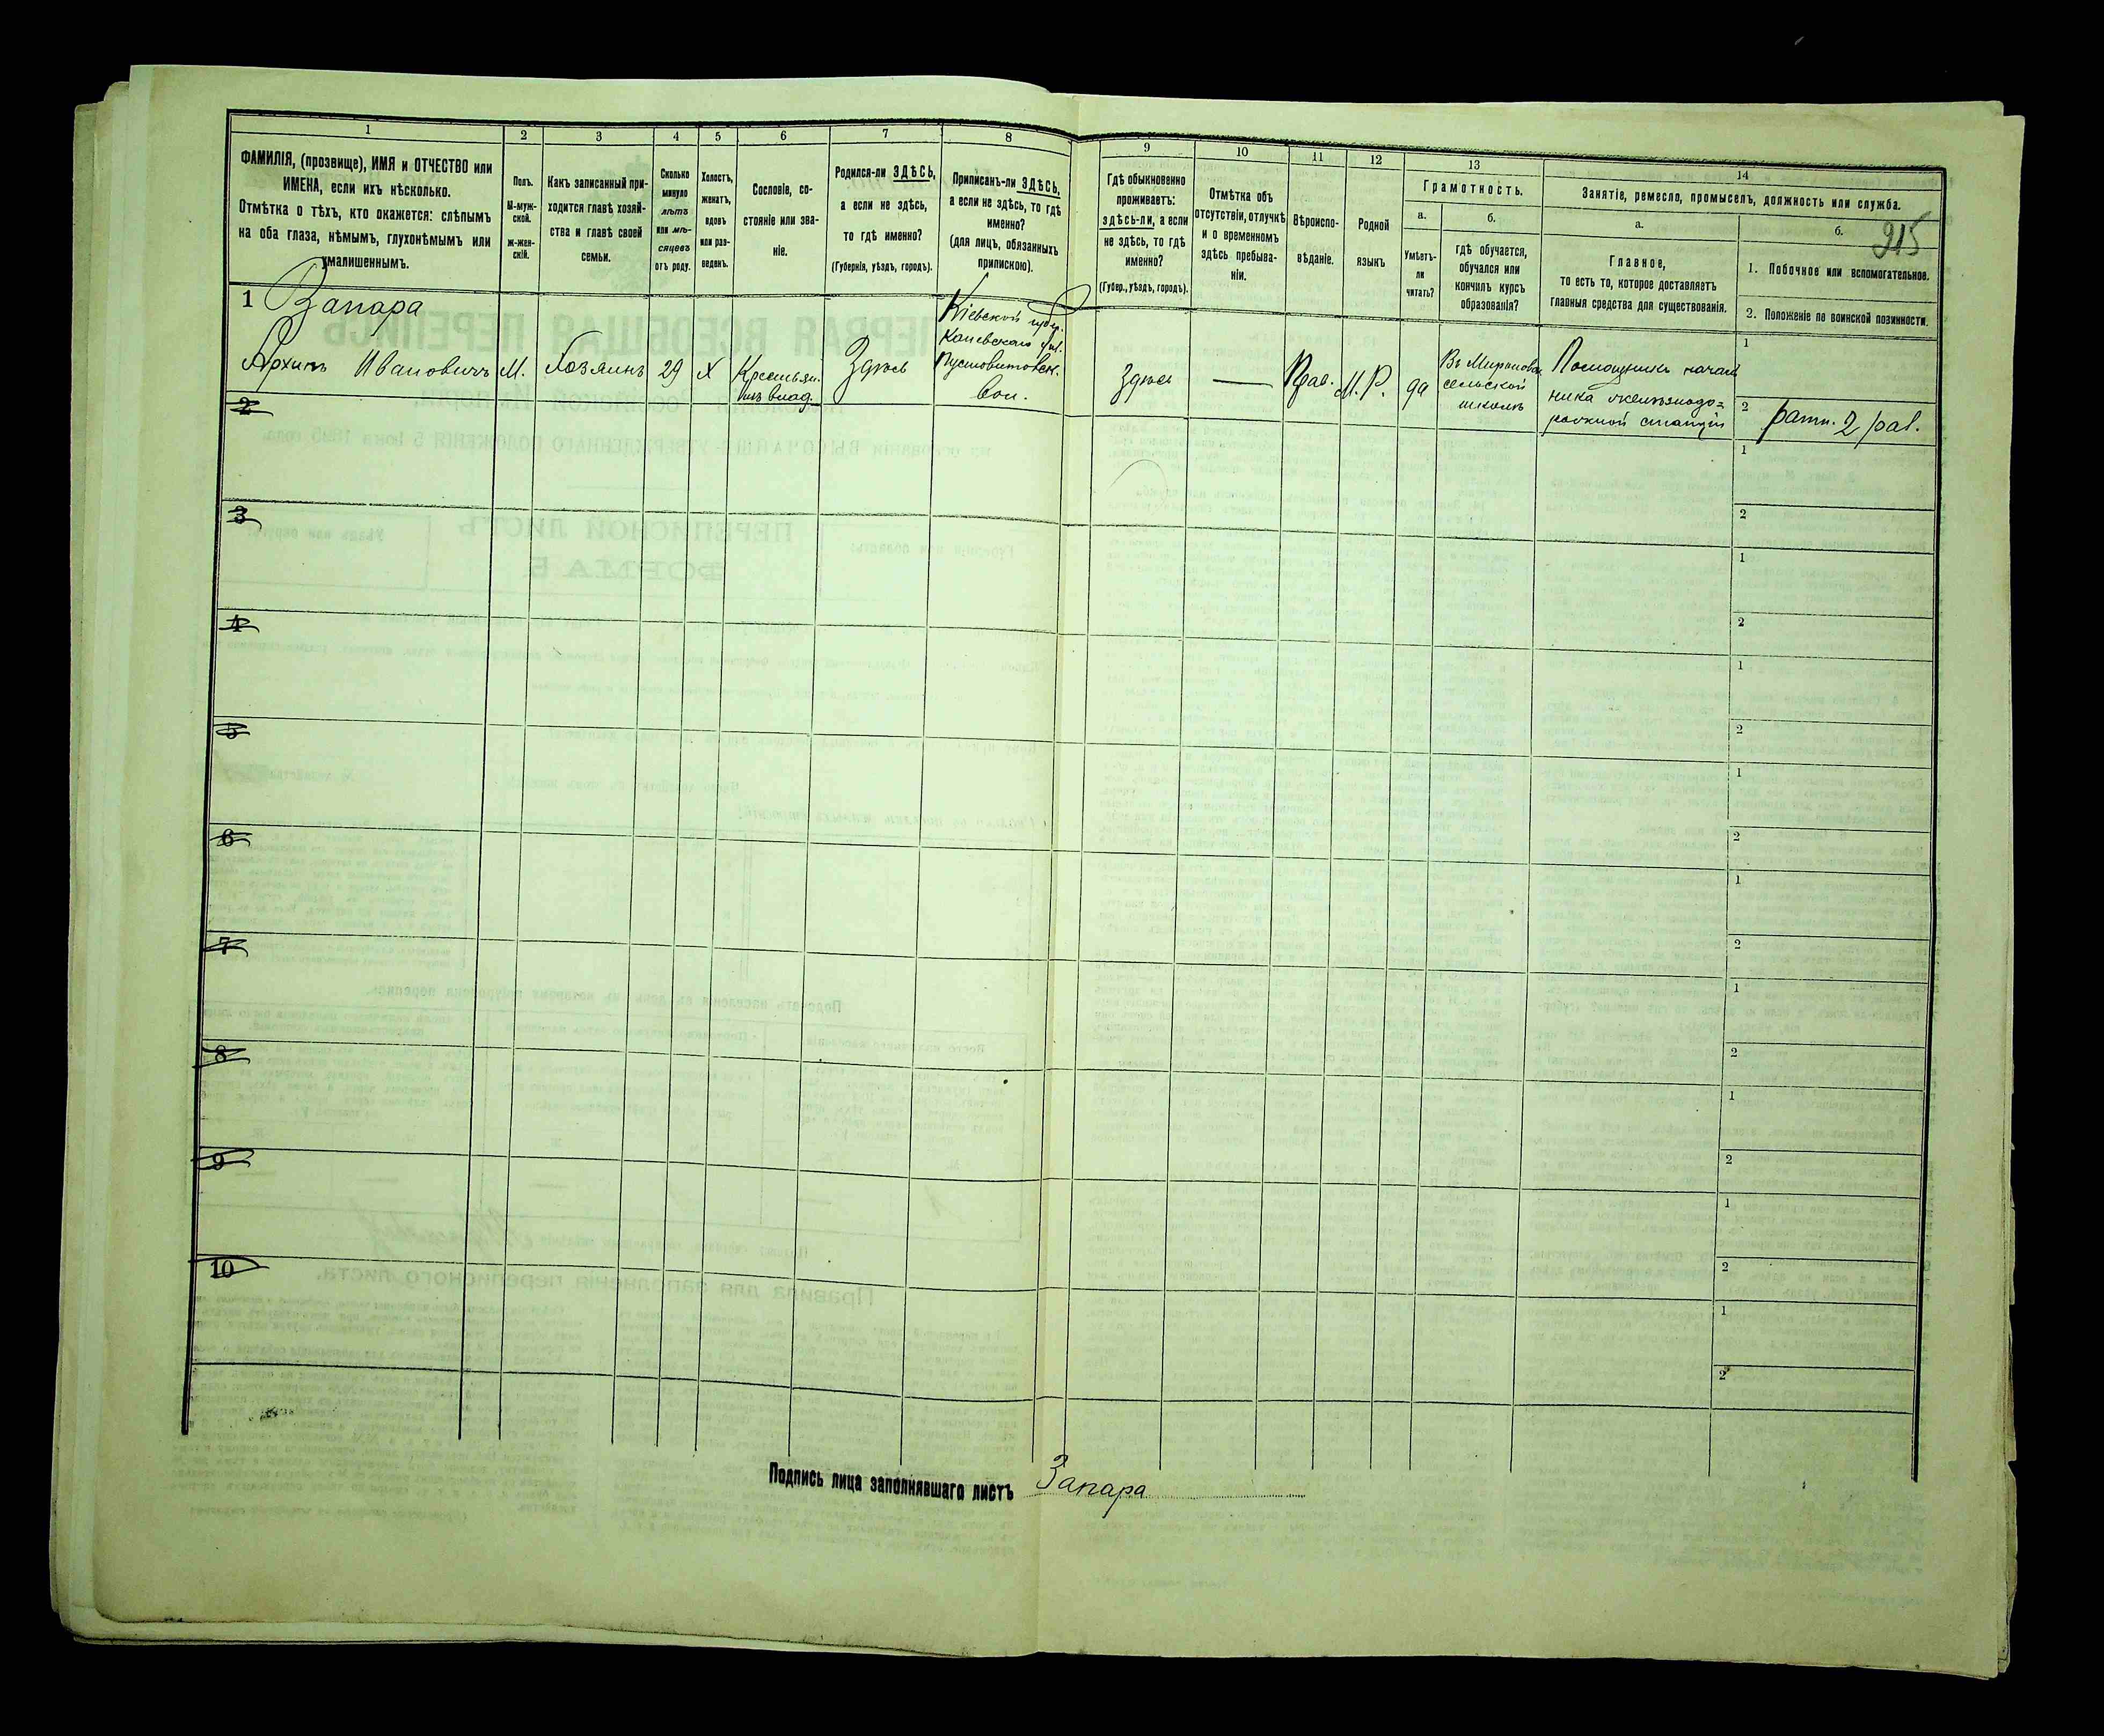 1 2 3 4 5 6 7 8 9 10 11 12 13 14
ФАМИЛІЯ, (прозвище), ИМЯ и ОТЧЕСТВО или
ИМЕНА, если ихъ нѣсколько.
Отмѣтка о тѣхъ, кто окажется: слѣпымъ
на оба глаза, нѣмымъ, глухонѣмымъ или
умалишеннымъ.
Полъ.
М-муж-
ской.
Ж-жен-
скій.
Какъ записанный при-
ходится главѣ хозяй-
ства и главѣ своей
семьи.
Сколько
минуло
лѣтъ
или мѣ-
сяцевъ
отъ роду.
Холостъ,
женатъ,
вдовъ
или раз-
веденъ.
Сословіе, со-
стояніе или зва-
ніе.
Родился-ли ЗДѢСЬ,
а если не здѣсь,
то гдѣ именно?
(Губернія, уѣздъ, городъ).
Приписанъ-ли ЗДѢСЬ,
а если не здѣсь, то гдѣ
именно?
(для лицъ, обязанныхъ
припискою).
Гдѣ обыкновенно
проживаетъ:
здѣсь-ли, а если
не здѣсь, то гдѣ
именно?
(Губер., уѣздъ, городъ).
Отмѣтка объ
отсутствіи, отлучкѣ
и о временномъ
здѣсь пребыва-
ніи.
Вѣроиспо-
вѣданіе.
Родной
языкъ
Грамотность.
а.
Умѣетъ-
ли
читать?
б.
гдѣ обучается,
обучался или
кончилъ курсъ
образованія?
Занятіе, ремесло, промыселъ, должность или служба.
а.
Главное,
то есть то, которое доставляетъ
главныя средства для существованія.
б.
915
1. Побочное или вспомогательное.
2. Положеніе по воинской повинности.
1 Запара
Архипъ Ивановичъ
М.
Хозяинъ
29
Х
Крестьян.
изъ влад.
Здѣсь
Кіевской губ.
Каневскаго уѣз.
Пустовитовск.
вол.
Здѣсь
—
Прав.
М. Р.
да
Въ Мироновск.
сельской
школѣ
Помощникъ началь
ника желѣзнодо=
рожной станціи
1
2 ратн. 2 раз.
2
1
2
3
1
2
4
1
2
5
1
2
6
1
2
7
1
2
8
1
2
9
1
2
10
1
2
Подпись лица заполнявшаго листъ Запара